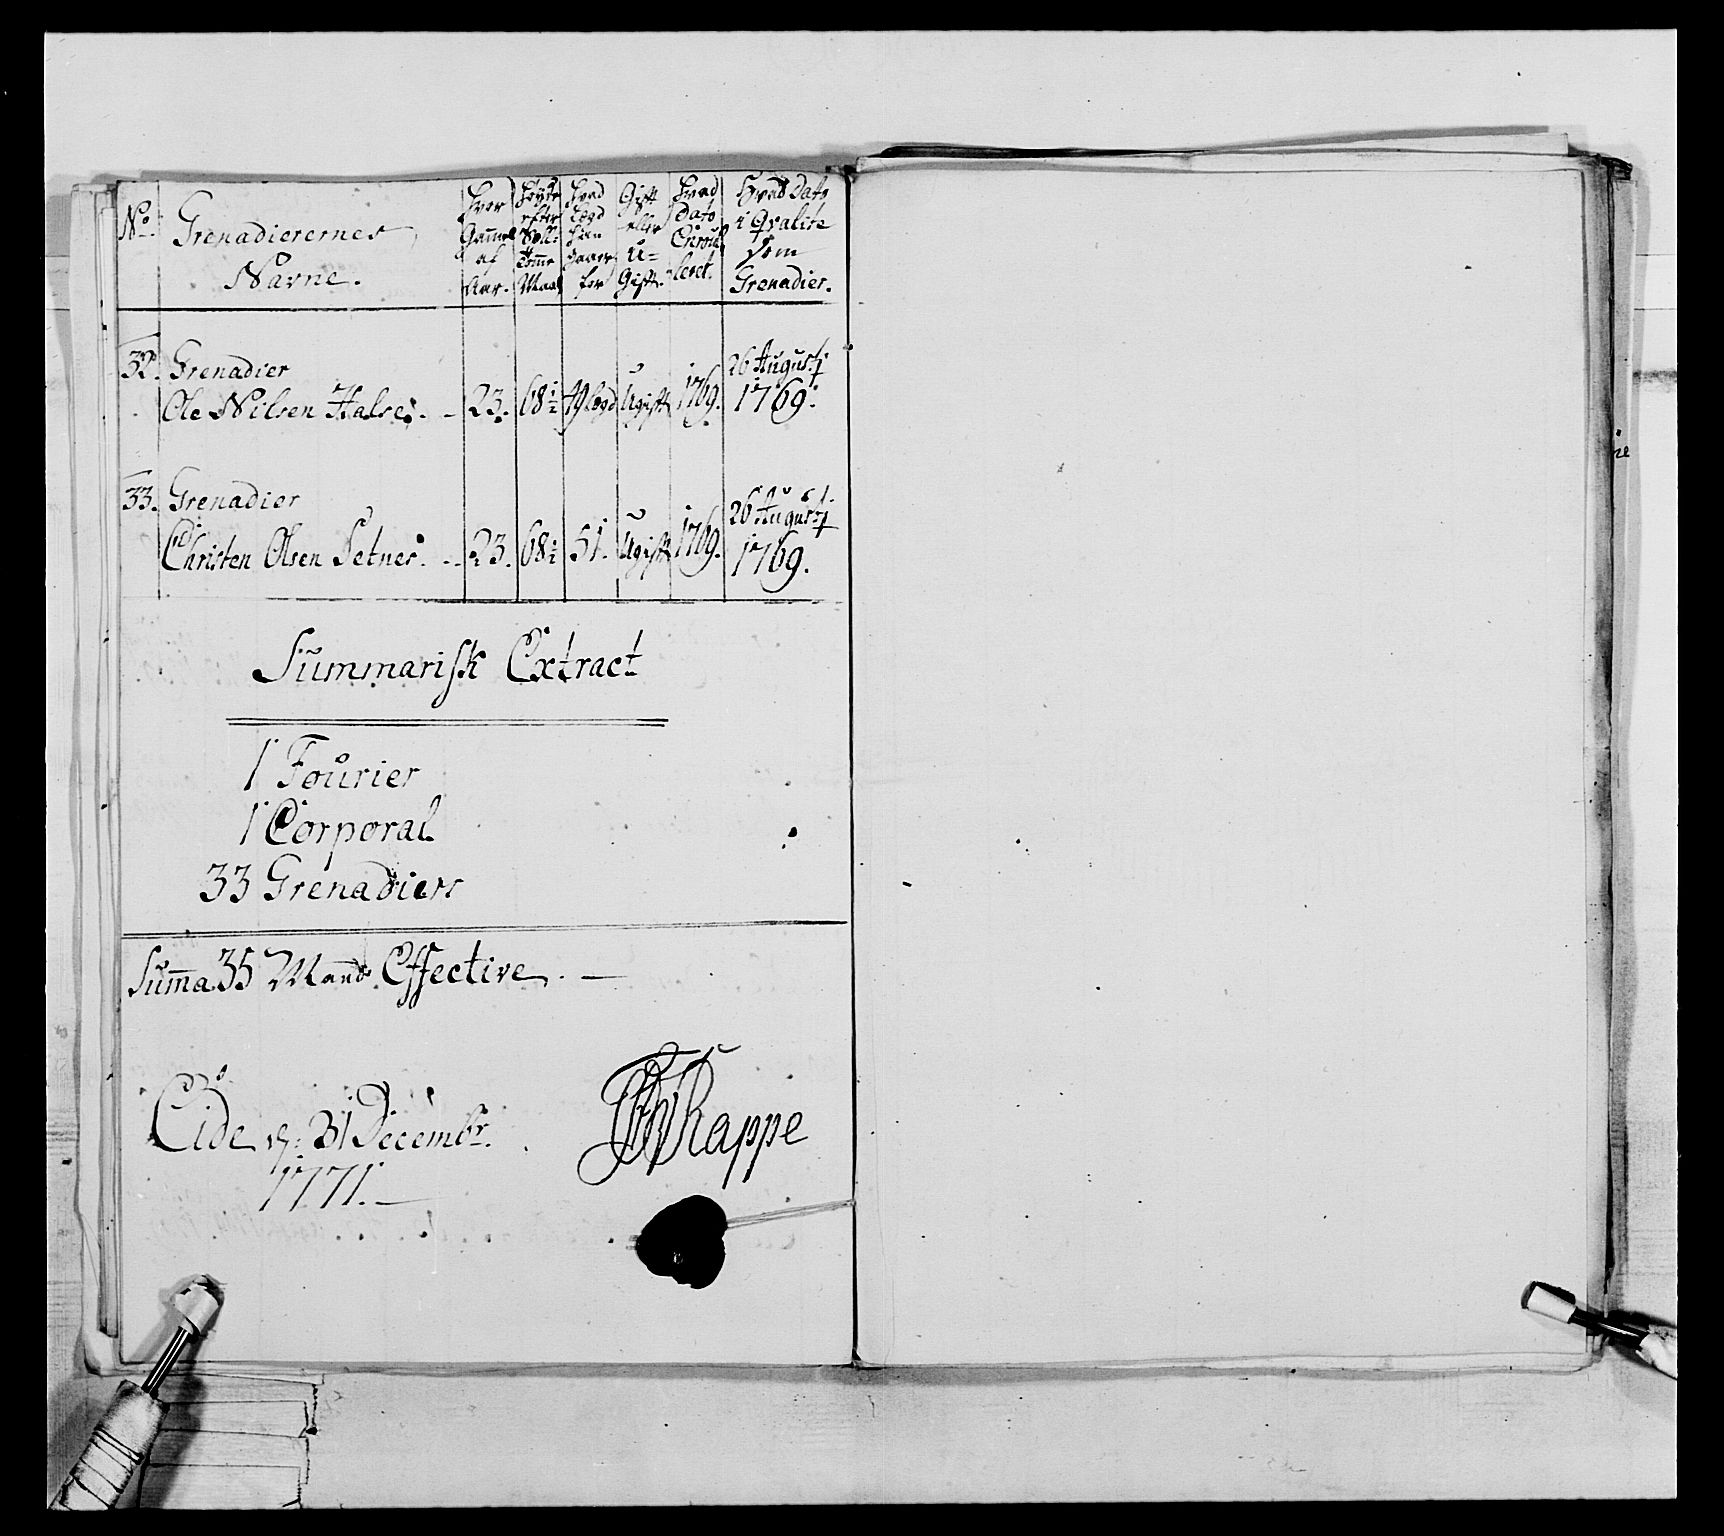 No. Grenadierernes Navne.
Hvor Gam̅el af Aar.
Høyde efter Soll: Tom̅e Maal
Hvad Lægd han svarer for
Gift eller U= Gift.
Hvad Dato Enroulleret.
Hvad Dato i Qvalite som Grenadier.
32. Grenadier
Ole Nilsen Halse. 23. 68½ 49 Lægd Ugift 1769. 26 Augusti 1769.
33. Grenadier
Christen Olsen Setnes. 23. 68½ 51. Ugift 1769. 26 Augusti 1769.
Summarisk Extract
1 Fourier
1 Corporal
33 Grenadiers
Sum̅a 35 Mands Effective.
Eide d: 31 Decembr.
1771.
Rappe